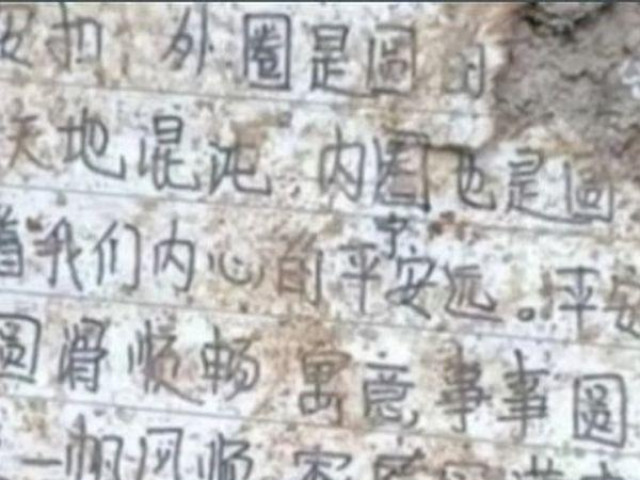 扣 外圈是圆的
天地混沌.内圈也是圆
着我们内心的平安远。平安
字
圆滑顺畅 寓意事事圆
一帆风顺